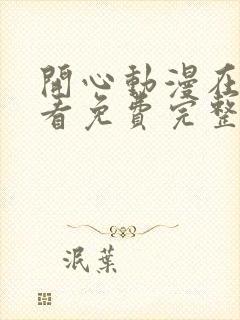 開心動漫在
看免費完整
泯葉